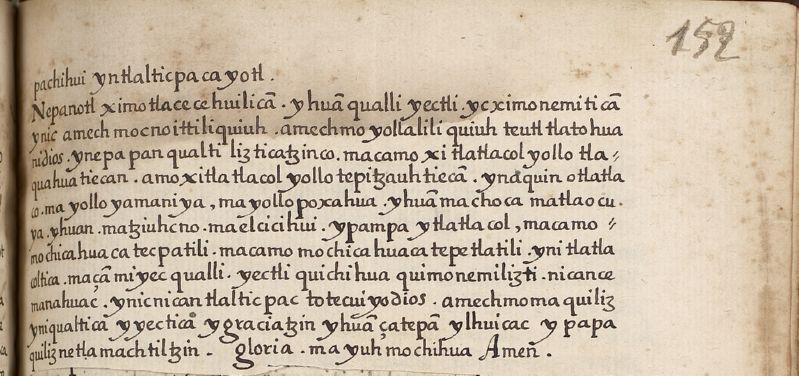 152
pachihui yntlalticpacayotl.
Nepanotl ximotlacecehuilicā. yhuā qualli yectli. ycximonemiticā
ynic amechmocnoittiliquiuh. amechmoyollaliliquiuh teutl tlatohua
nidios. ynepapanqualtilizticatzinco. macamo xitlatlacolyollotla=
quahuatiecan. amoxitlatlacolyollotepitzauhtiecā. yn aquin otlatla
co. ma yollo yamaniya, ma yollopoxahua. yhuā ma choca matlaocu.
ya. yhuan. matziuhcno. maelcicihui. ypampa ytlatlacol, macamo =
mochicahuacatecpatili. macamo mochicahuacatepetlatili. yni tlatla
coltica. maçā miyec qualli. yectli quichihua quimonemilizti. nicance
manahuac. ynicnican tlalticpac totecuiyo dios. amechmomaquiliz
yniqualticā yyecticā ygraciatzin yhuā çatepā ylhuicac ypapa
quiliznetlamachtiltzin. gloria. ma yuh mochihua Amen.